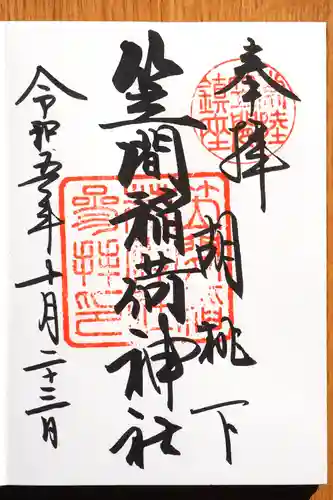 奉拝
胡桃下
笠間稲荷神社
令和五年十月二十三日